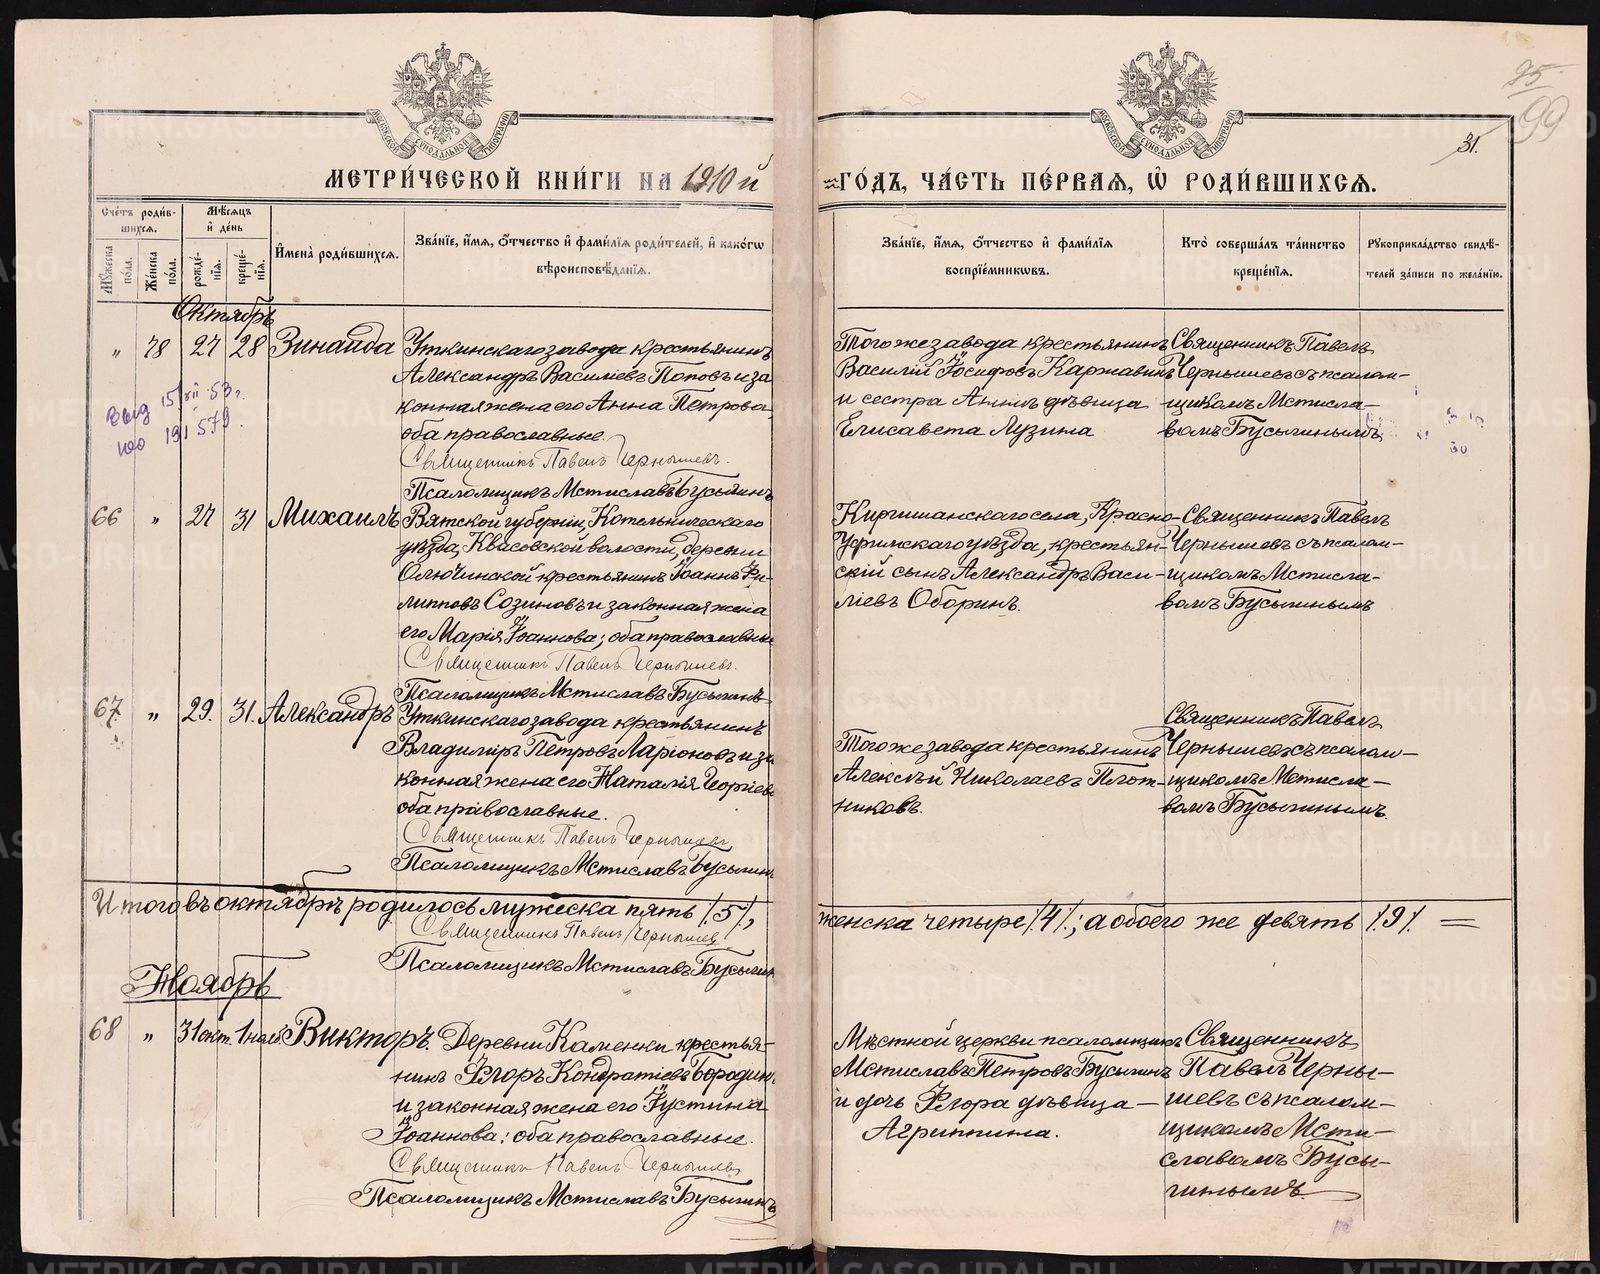 25
99
31.
МОСКОВСКОЙ СУНОДАЛЬНОЙ ТИПОГРАФІИ
МОСКОВСКОЙ СУНОДАЛЬНОЙ ТИПОГРАФІИ
МЕТРИ́ЧЕСКОЙ КНИ́ГИ НА 1910й
ГО́ДЪ, ЧА́СТЬ ПЕ́РВАЯ, Ѽ РОДИ́ВШИХСЯ.
Сче́тъ роди́в-
шихся.
Му́жеска
по́ла.
Же́нска
по́ла.
Мѣ́сяцъ
и҆ де́нь
рожде́-
нїя.
креще́-
нїя.
И҆мена̀ роди́вшихся.
Зва́нїе, и҆́мя, ѻ҆́тчество и҆ фами́лїя роди́телей, и҆ како́гѡ
вѣроисповѣ́данїя.
Зва́нїе, и҆́мя, ѻ҆́тчество и҆ фами́лїя
воспрїе́мниковъ.
Кто̀ соверша́лъ та́инство
креще́нїя.
Рꙋкоприкла́дство свидѣ́-
телей за́писи по жела́нїю.
Октябрь
" 78 27 28 Зинаида
Уткинскаго завода крестьянинъ
Александръ Василіевъ Поповъ и за
конная жена его Анна Петрова
оба православные.
Священникъ Павелъ Чернышевъ.
Псаломщикъ Мстиславъ Бусыгинъ
Того же завода крестьянинъ
Василій Іосифовъ Каржавинъ
и сестра Анны дѣвица
Елисавета Лузина
Священникъ Павелъ
Чернышевъ съ псалом-
щикомъ Мстисла-
вомъ Бусыгинымъ
выд 15/VII 53 г.
ню 191579
66 " 27 31 Михаилъ
Вятской губерніи, Котельническаго
уѣзда, Квасовской волости, деревни
Олючинской крестьянинъ Іоаннъ Фи-
липповъ Созиновъ и законная жена
его Марія Іоаннова; оба православные
Священникъ Павелъ Чернышевъ.
Псаломщикъ Мстиславъ Бусыгинъ
Киргишанскаго села, Красно-
Уфимскаго уѣзда, крестьян-
скій сынъ Александръ Васи-
ліевъ Оборинъ.
Священникъ Павелъ
Чернышевъ съ псалом-
щикомъ Мстисла-
вомъ Бусыгинымъ
67. " 29. 31. Александръ
Уткинскаго завода крестьянинъ
Владиміръ Петровъ Ларіоновъ и за
конная жена его Наталія Георгіева
оба православные.
Священникъ Павелъ Чернышевъ
Псаломщикъ Мстиславъ Бусыгинъ
Того же завода крестьянинъ
Алексѣй Николаевъ Плот-
никовъ.
Священникъ Павелъ
Чернышевъ съ псалом-
щикомъ Мстисла-
вомъ Бусыгинымъ.
Итого въ октябрѣ родилось мужеска пять /.5/.,
женска четыре /.4/.; а обоего же девять /.9/. =
Священникъ Павелъ Чернышев
Псаломщикъ Мстиславъ Бусыгин
Ноябрь
68 " 31 окт. 1 нояб. Викторъ.
Деревни Каменки крестья-
нинъ Флоръ Кондратіевъ Бородинъ
и законная жена его Іустина
Іоаннова; оба православные.
Священникъ Павелъ Чернышевъ
Псаломщикъ Мстиславъ Бусыгинъ
Мѣстной церкви псаломщикъ
Мстиславъ Петровъ Бусыгинъ
и дочь Флора дѣвица —
Агриппина.
Священникъ
Павелъ Черны-
шевъ съ псалом-
щикомъ Мсти-
славомъ Бусы-
гинымъ
METRIKI.GASO-URAL.RU